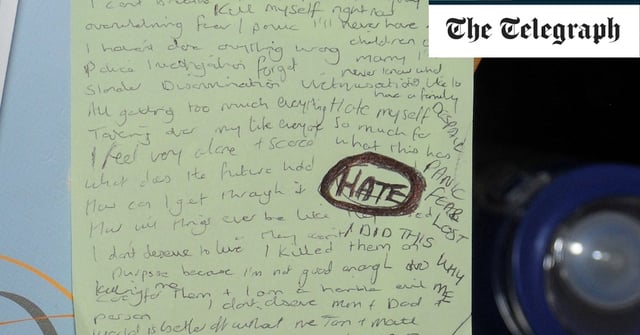 The Telegraph
Kill myself right now
overwhelming fear / panic I'll never have
I haven't done anything wrong children
Police Investigation forget marry
Slander Discrimination Victimisation like to
have a family
All getting too much everything Hate myself
DESPAIR
Taking over my life everyone so much for
I feel very alone + scared what this has
PANIC
What does the future hold
HATE
FEAR
How can I get through it
LOST
How will things ever be like
they won't I DID THIS
I don't deserve to live I killed them on
WHY
purpose because I'm not good enough
ME
care for them + I am a horrible evil
person I don't deserve mum + Dad +
world is better off without me